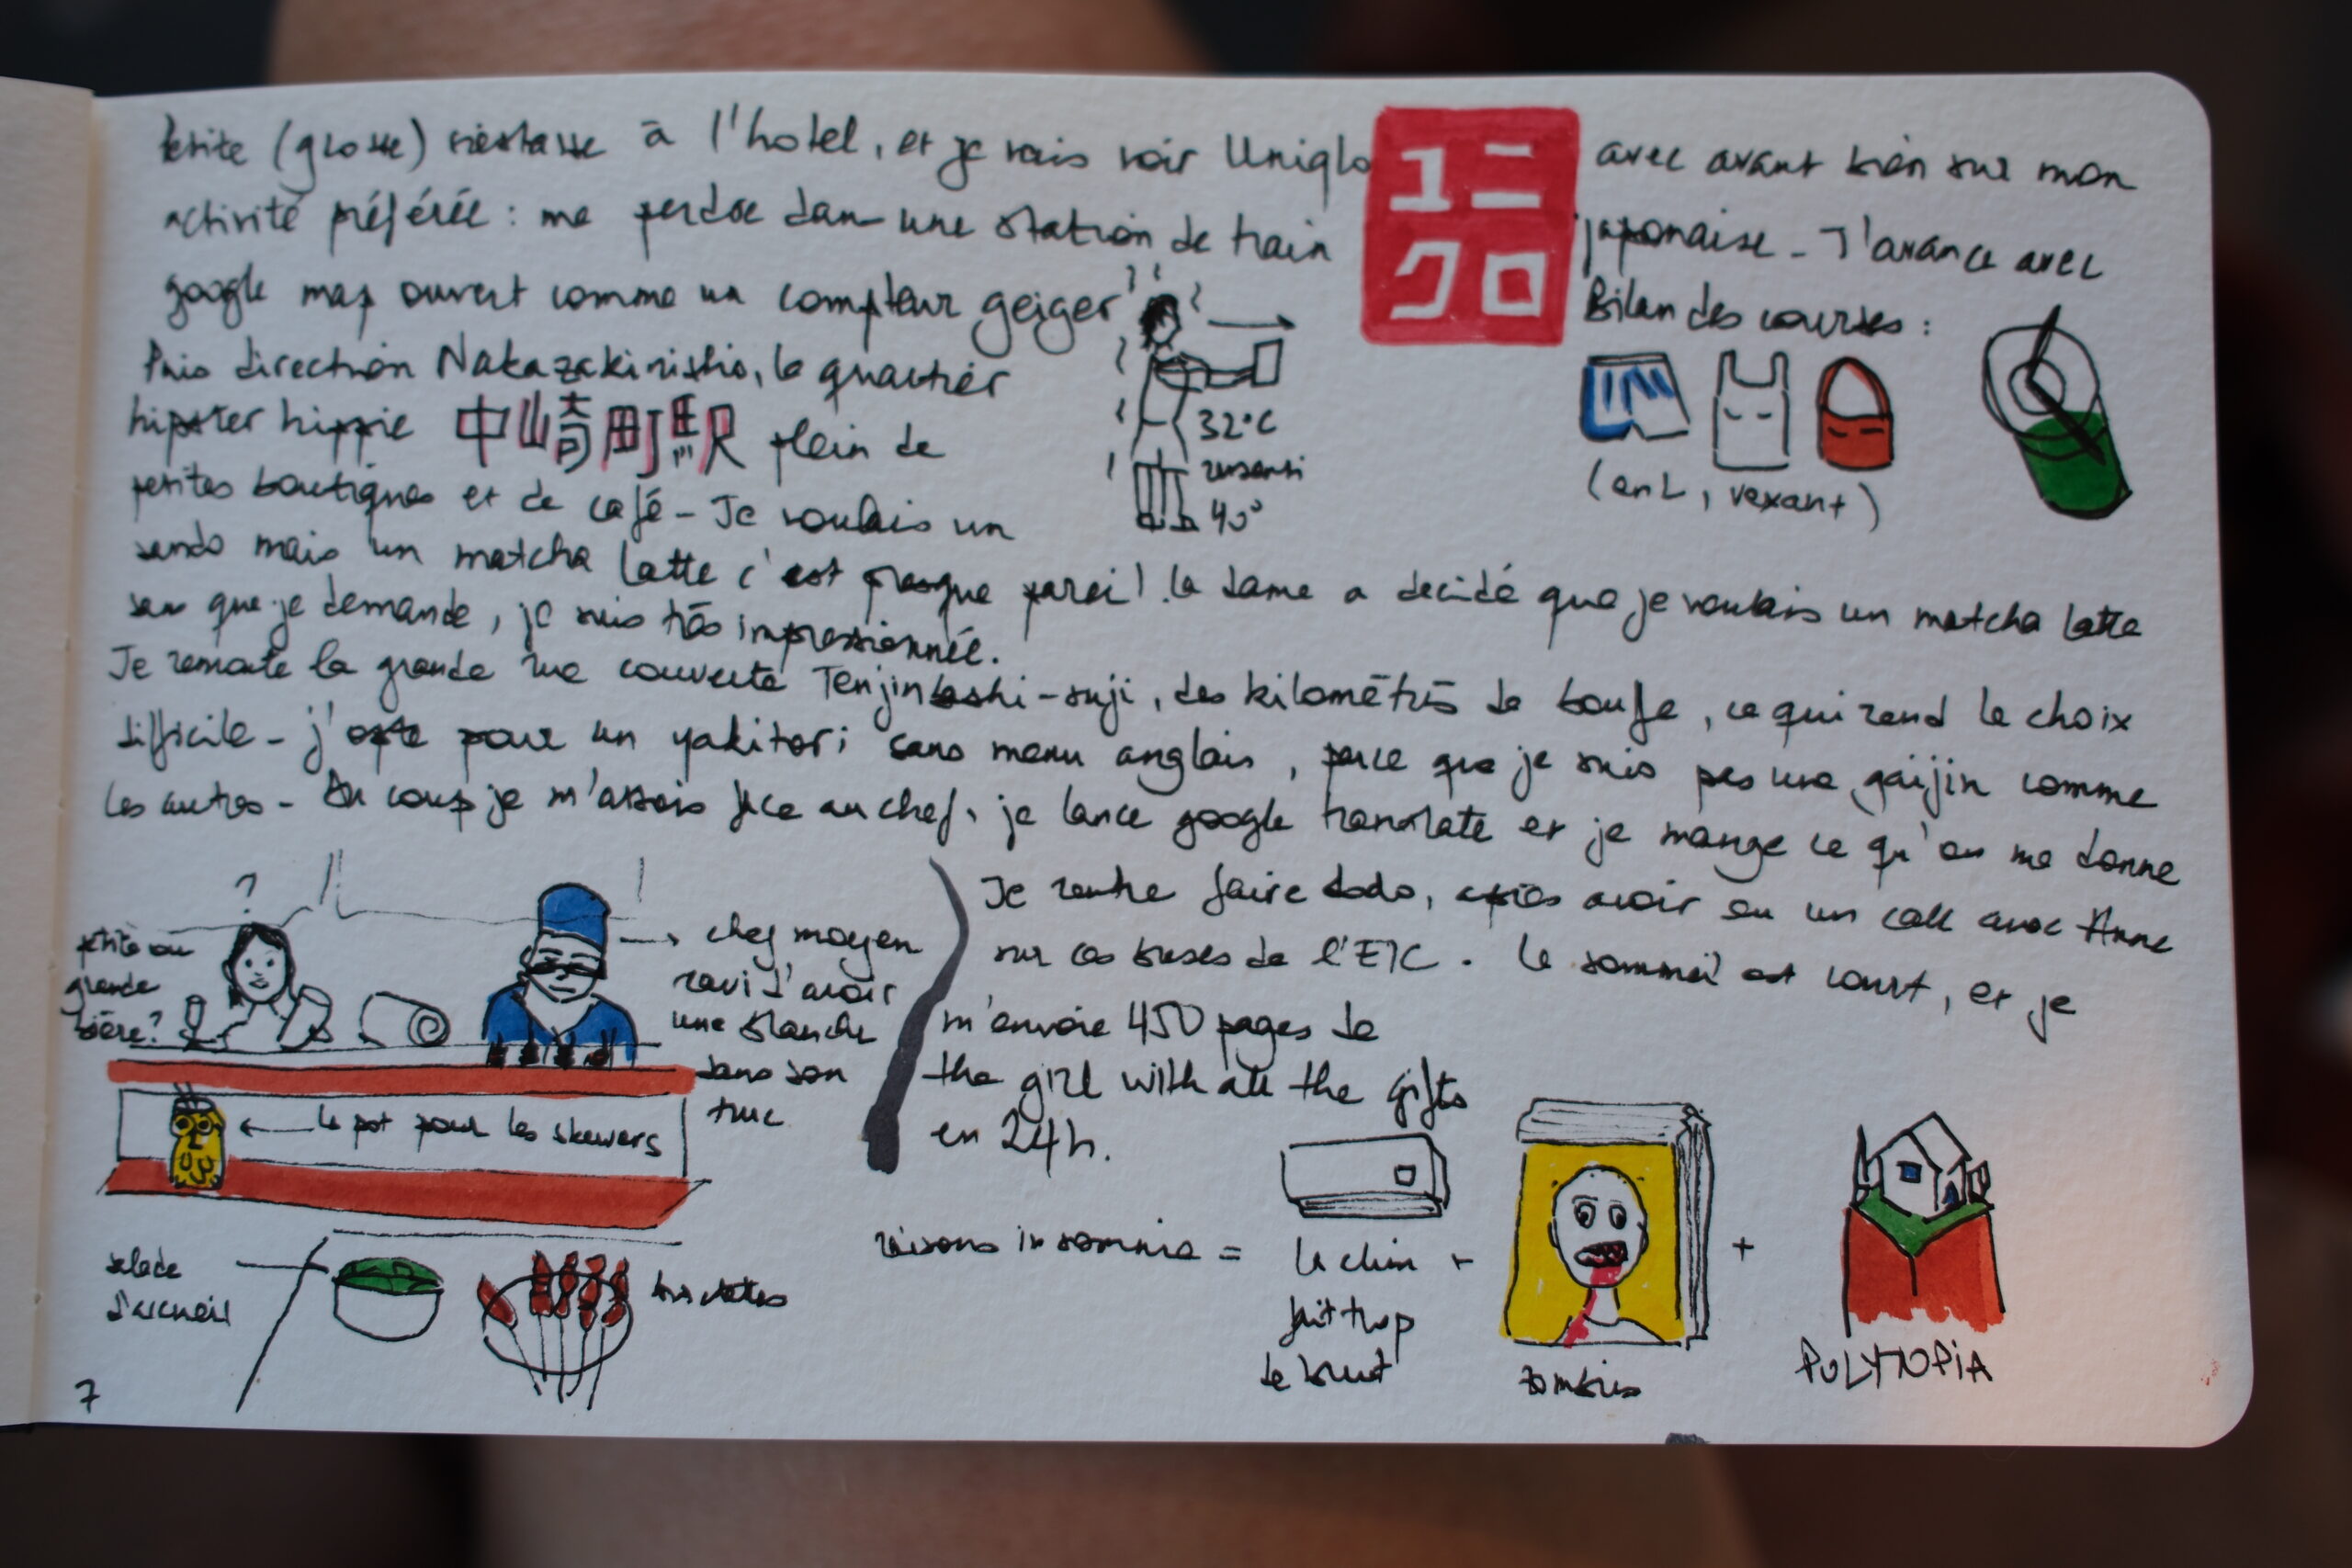 Petite (grosse) siestasse à l'hotel, et je vais voir Uniqlo ユニクロ avec avant bien sur mon
activité préférée : me perdre dans une station de train japonaise - J'avance avec
google map ouvert comme un compteur geiger
Bilan des courses :
Puis direction Nakazakinishi, le quartier
hipster hippie 中崎町駅 plein de
petites boutiques et de café - Je voulais un
32°C
ressenti
40°
(en L, vexant)
sando mais un matcha latte c'est presque pareil. la dame a decidé que je voulais un matcha latte
sans que je demande, je suis très impressionnée.
Je remonte la grande rue couverte Tenjinbashi-suji, des kilomètres de bouffe, ce qui rend le choix
difficile - j'opte pour un yakitori sans menu anglais, parce que je suis pas une gaijin comme
les autres - Du coup je m'assois face au chef, je lance google translate et je mange ce qu'on me donne
?
petite ou
grande
bière?
chef moyen
ravi d'avoir
une blanche
dans son
truc
le pot pour les skewers
salade
d'accueil
7
Je rentre faire dodo, après avoir eu un call avec Anne
sur les bases de l'ETC. Le sommeil est court, et je
m'envoie 450 pages de
the girl with all the gifts
en 24h.
raisons insomnie =
la clim
fait trop
de bruit
+
zombies
+
POLYTOPIA